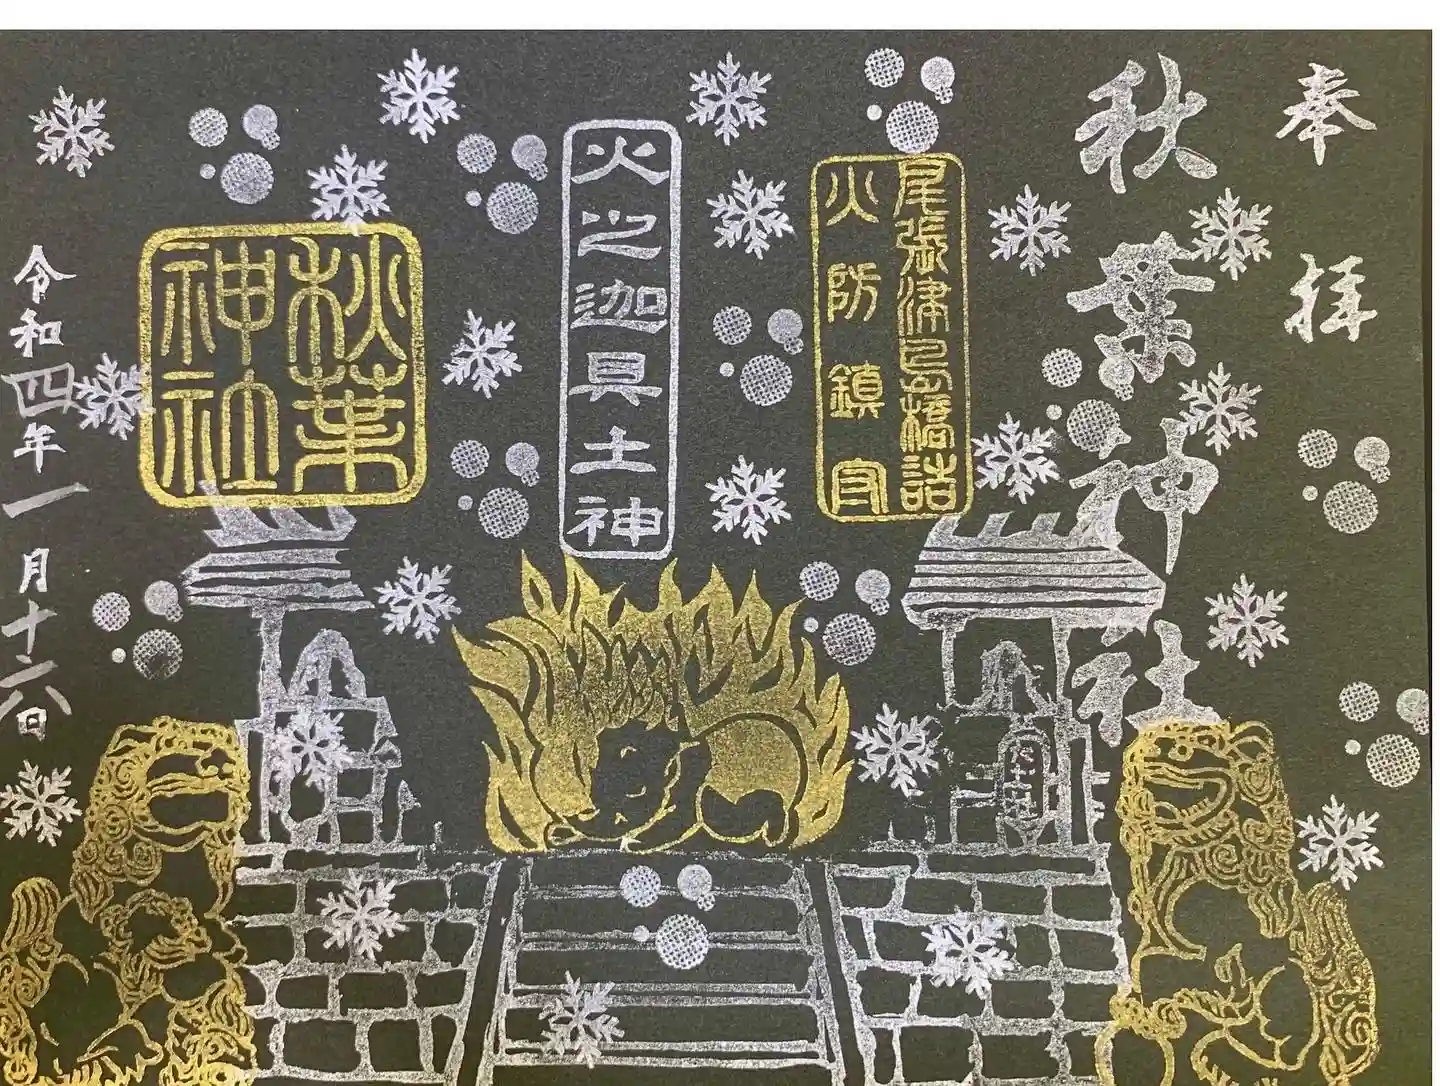 奉拝
秋葉神社
尾張津島祓橋詰
火防鎮守
火之迦具土神
秋葉
神社
令和四年一月十六日